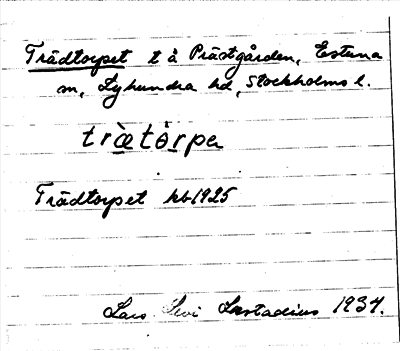 Trädtorpet t å Prästgården, Estuna
sn, Lyhundra hd, Stockholms l.
træ̀tòrpa
Trädtorpet kb 1925
Lars Levi Læstadius 1934.